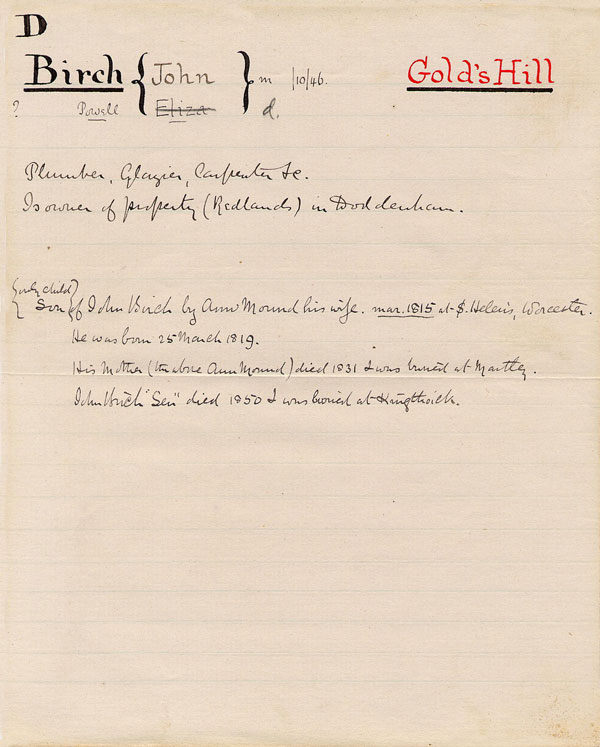 D
Birch { John } m /10/46. Gold's Hill
? Powell Eliza d.
Plumber, Glazier, Carpenter &c.
Is owner of property (Redlands) in Doddenham.
(only child)
{ Son of John Birch by Ann Mound his wife. mar. 1815 at S. Helen's, Worcester.
He was born 25 March 1819.
His Mother (the above Ann Mound) died 1831 & was buried at Martley.
John Birch "Sen" died 1850 & was buried at Knightwick.